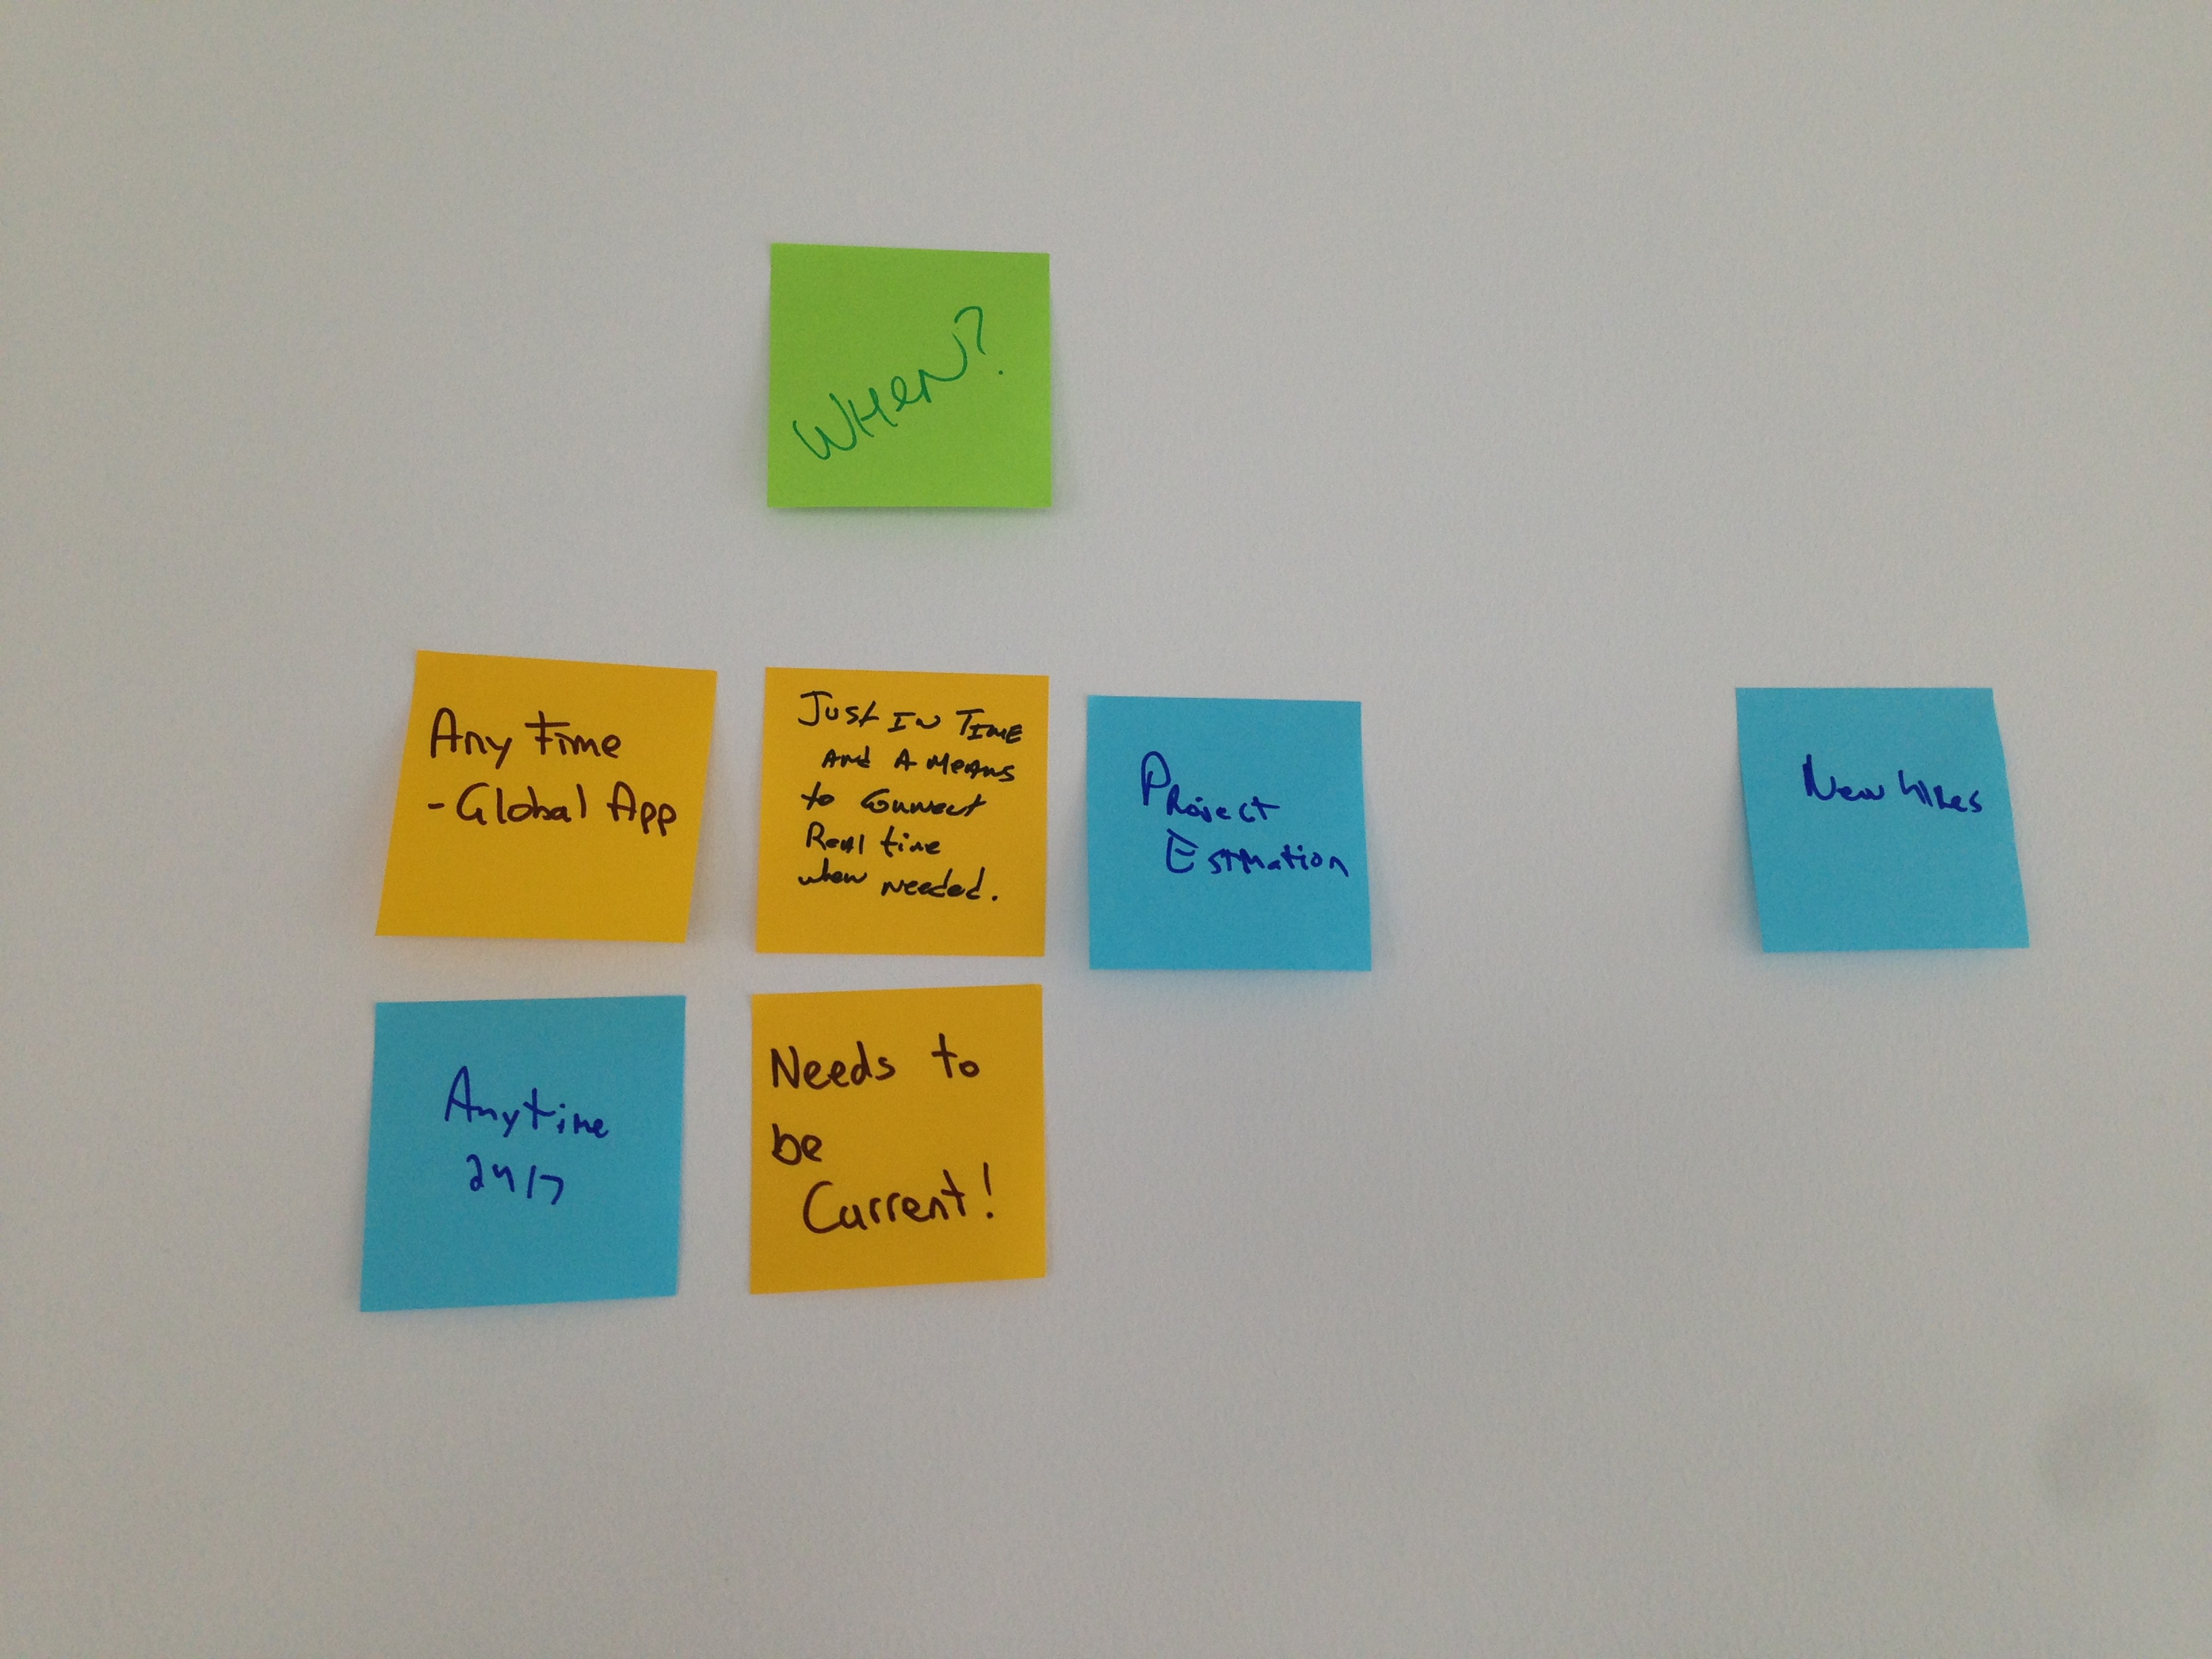 WHEN?
Any time
- Global App
Just In Time
and a means
to connect
Real time
when needed.
Project
Estimation
New hires
Anytime
24/7
Needs to
be
Current!